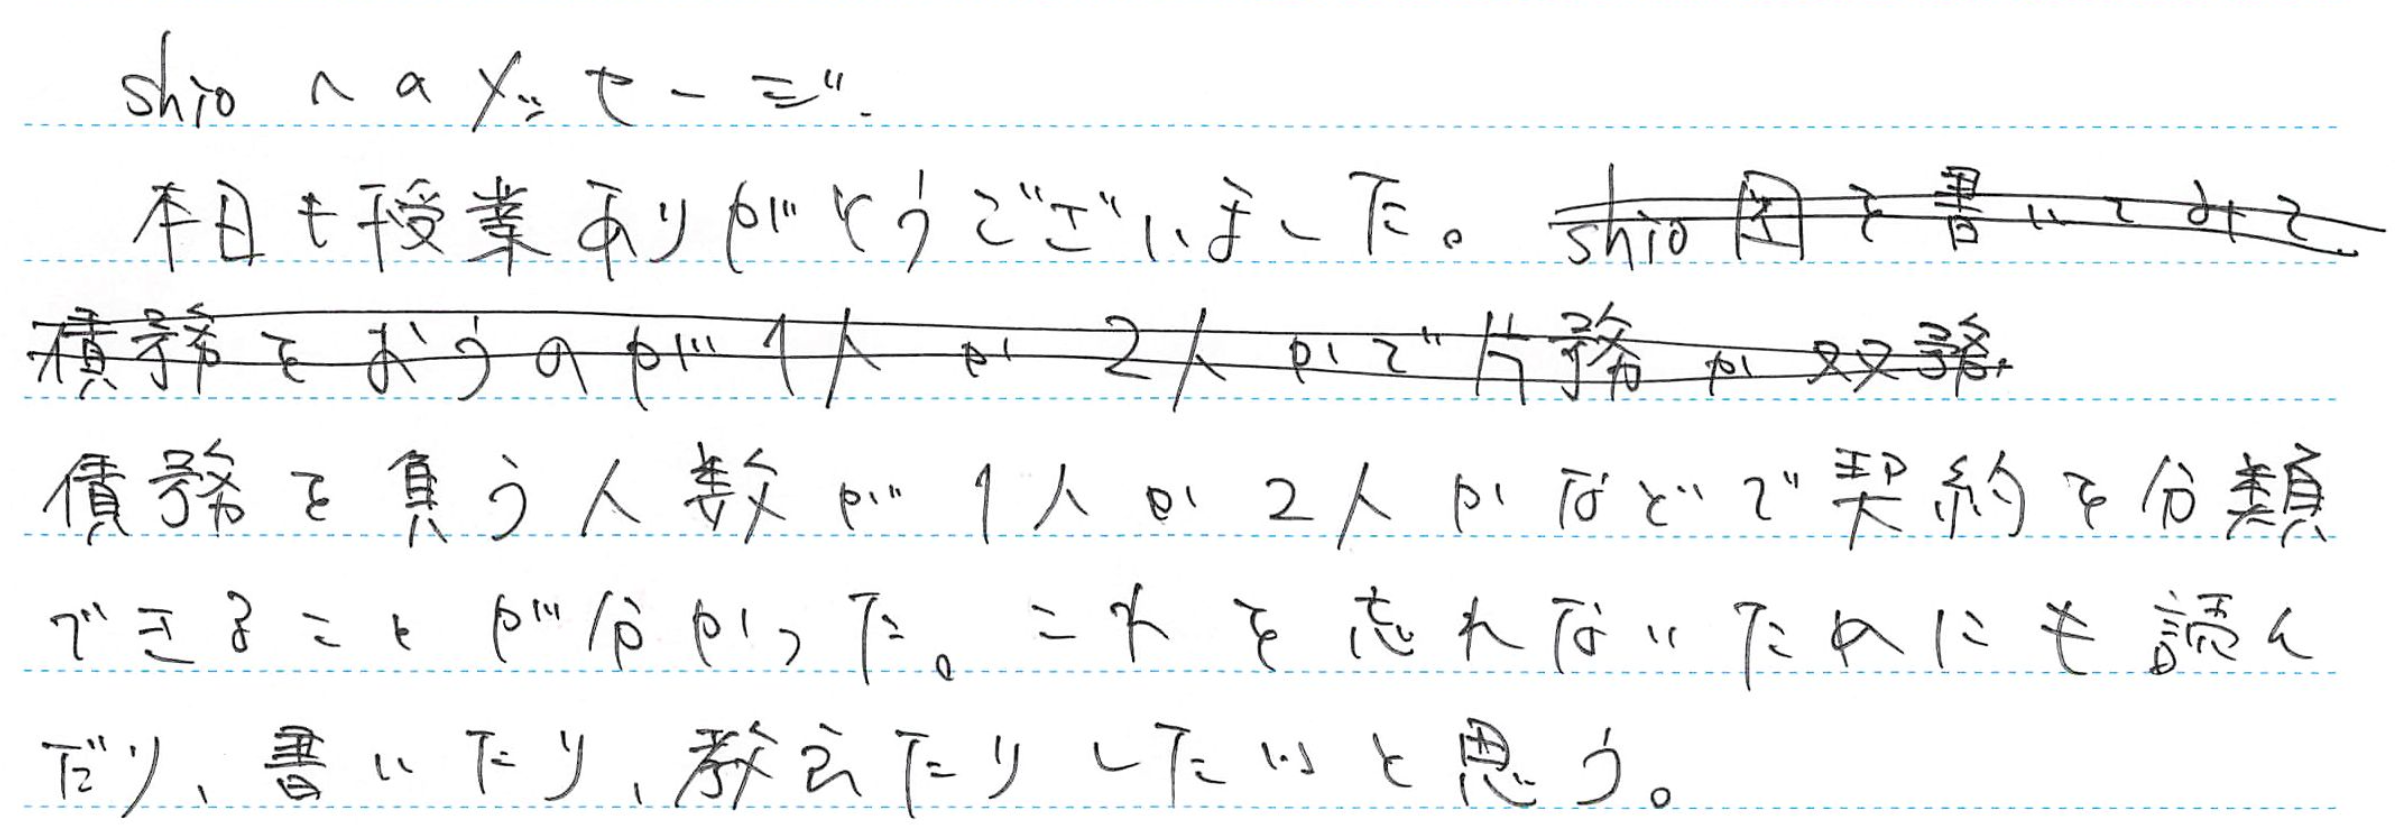 shioへのメッセージ.
本日も授業ありがとうございました。shio図を書いてみて
債務をおうのが1人か2人かで片務か双務.
債務を負う人数が1人か2人かなどで契約を分類
できることが分かった。これを忘れないためにも読ん
だり、書いたり、教えたりしたいと思う。